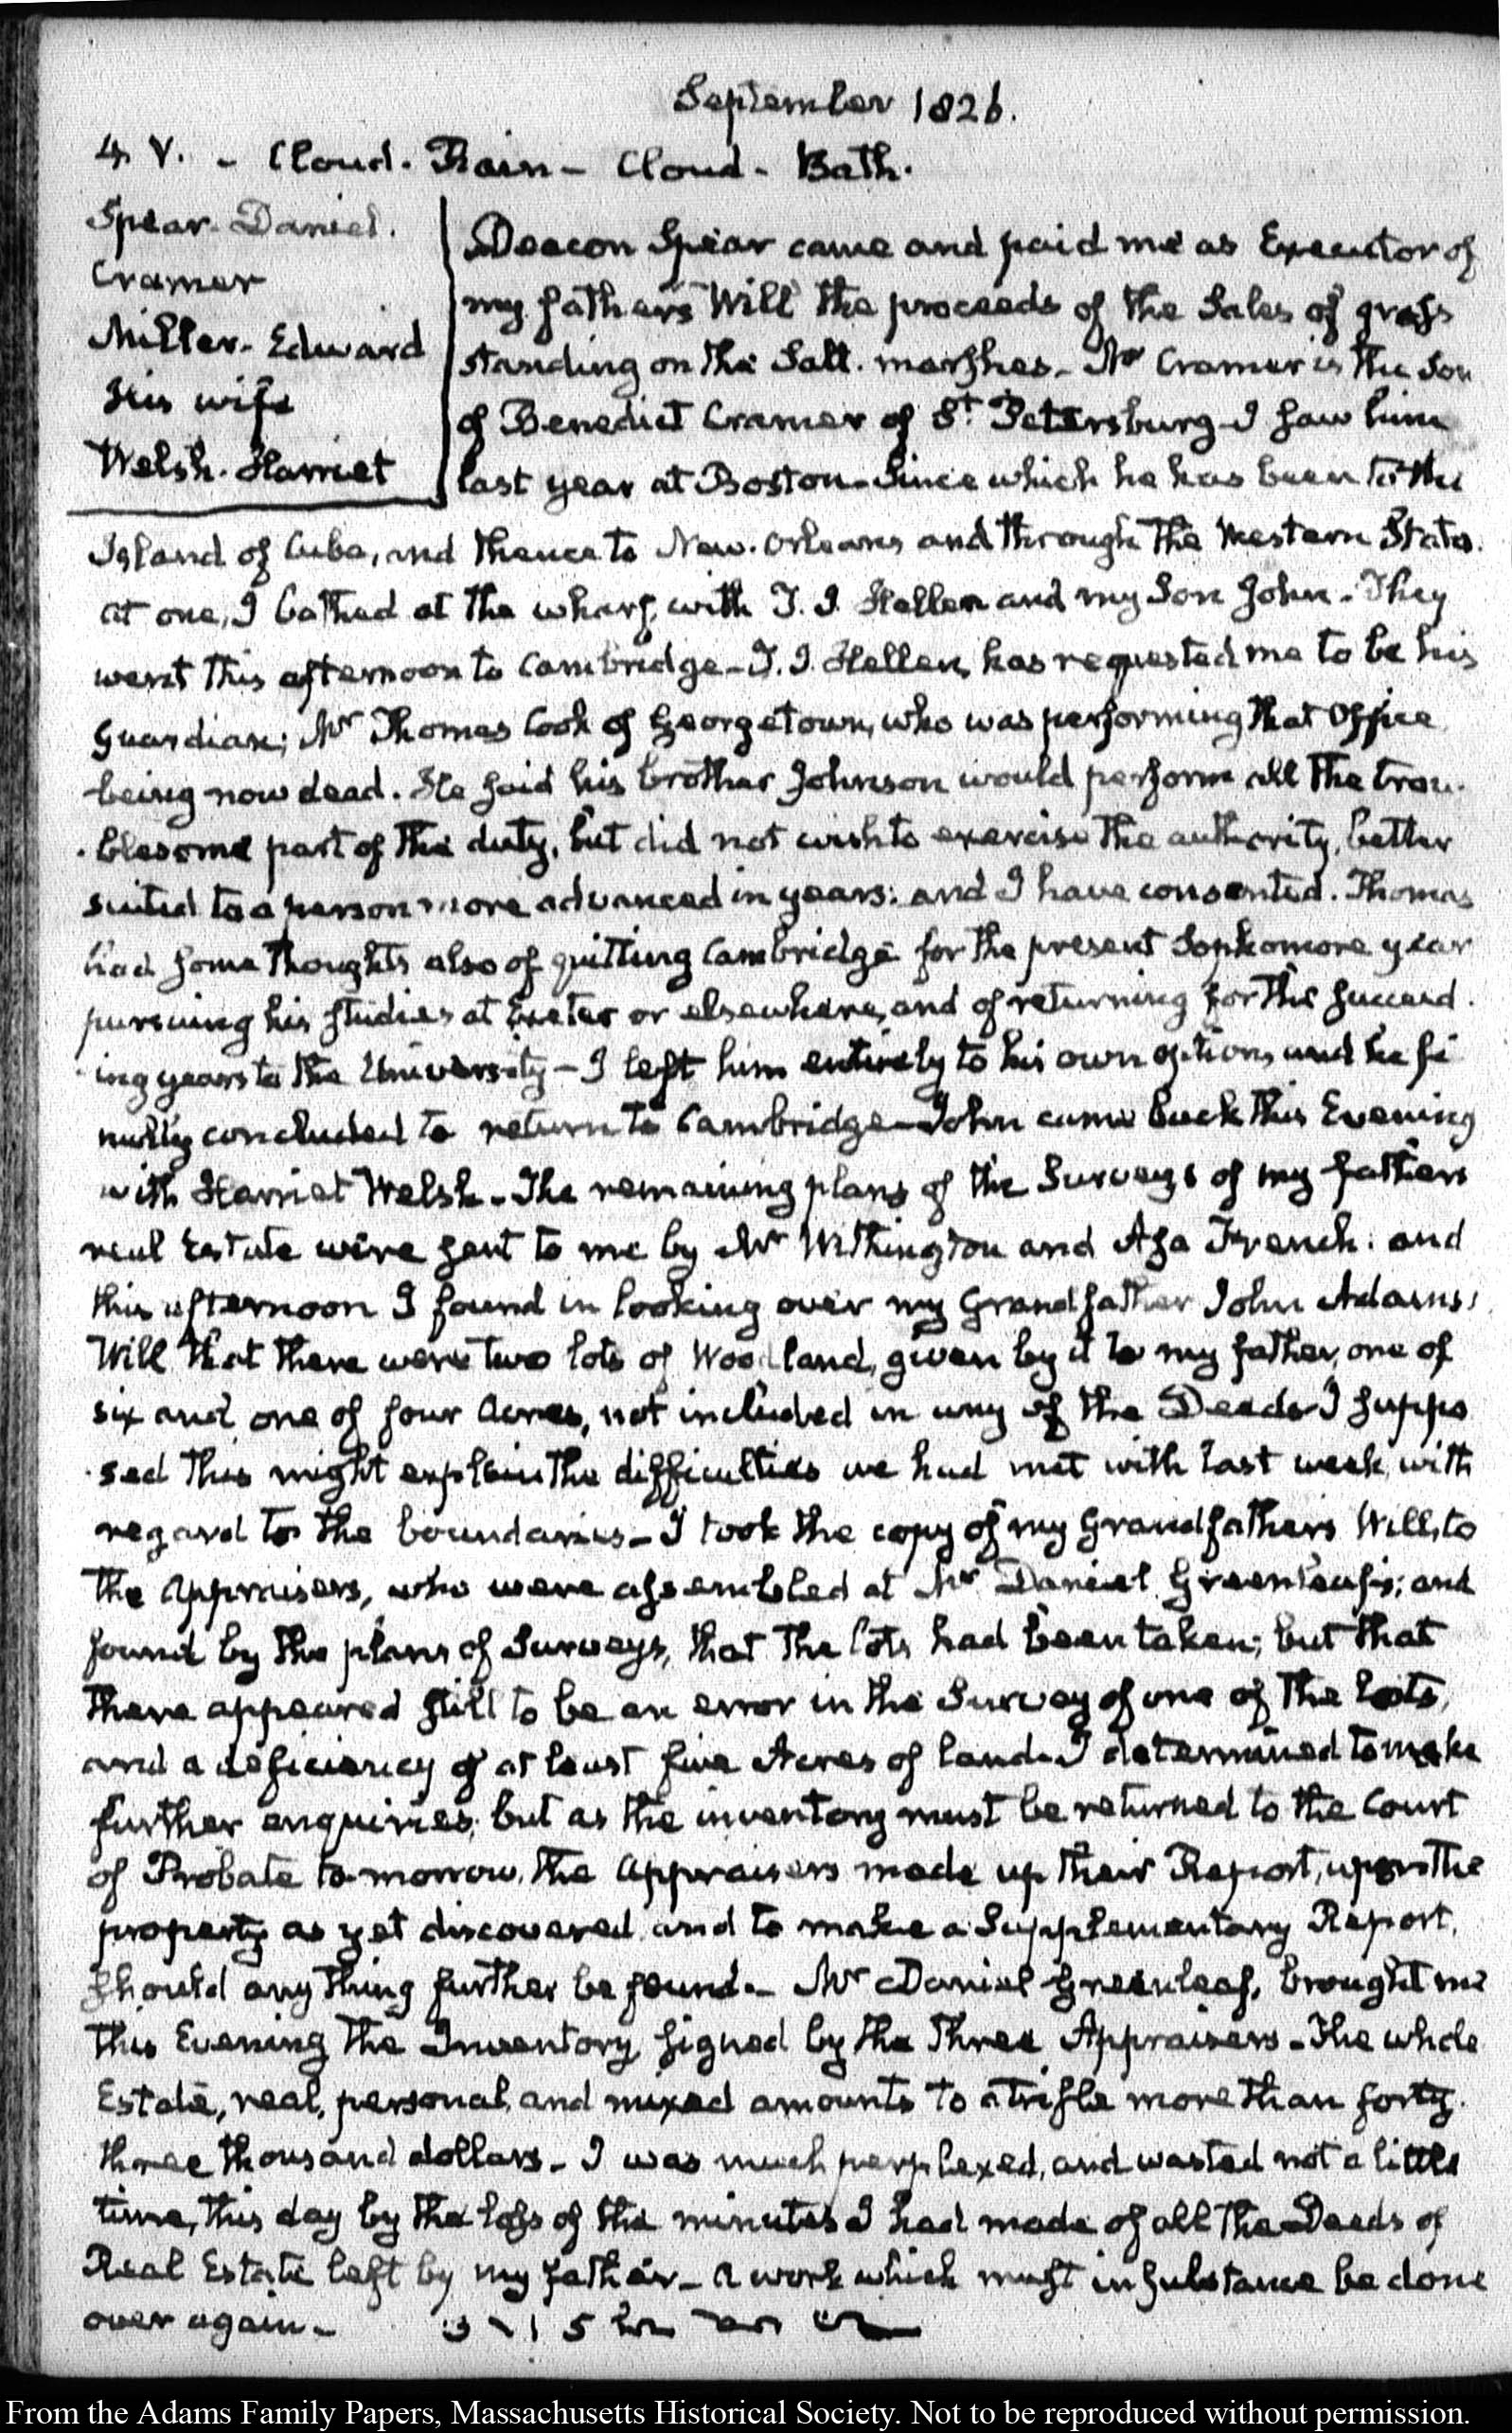 September 1826.
4. V. - Cloud. Rain - Cloud - Bath.
Spear. Daniel.
Cramer
Miller. Edward
His wife
Welsh. Harriet
Deacon Spear came and paid me as Executor of
my father's Will the proceeds of the Sales of grass
standing on the Salt. marshes - Mr Cramer is the Son
of Benedict Cramer of St. Petersburg - I saw him
last year at Boston - Since which he has been to the
Island of Cuba, and thence to New. Orleans and through the Western States.
at one, I bathed at the wharf, with T. J. Hellen and my Son John - They
went this afternoon to Cambridge - T. J. Hellen, has requested me to be his
Guardian; Mr Thomas Cook of Georgetown, who was performing that Office
being now dead. He said his brother Johnson would perform all the trou-
-blesome part of the duty, but did not wish to exercise the authority, better
suited to a person more advanced in years: and I have consented. Thomas
had some thoughts also of quitting Cambridge for the present Sophomore year
pursuing his studies at Exeter or elsewhere, and of returning for the succeed-
-ing years to the University - I left him entirely to his own option, and he fi
nally concluded to return to Cambridge - John came back this Evening
with Harriet Welsh - The remaining plans of the Surveys of my father's
real Estate were sent to me by Mr Withington and Asa French: and
this afternoon I found in looking over my Grandfather John Adams's
Will that there were two lots of Woodland, given by it to my father, one of
six and one of four Acres, not included in any of the Deeds - I suppo
-sed this might explain the difficulties we had met with last week, with
regard to the boundaries - I took the copy of my Grandfather's Will, to
the Appraisers, who were assembled at Mr Daniel Greenleaf's; and
found by the plans of Surveys, that the lots had been taken; but that
there appeared still to be an error in the Survey of one of the lots,
and a deficiency of at least five Acres of land - I determined to make
further enquiries; but as the inventory must be returned to the Court
of Probate to-morrow, the Appraisers made up their Report, upon the
property as yet discovered, and to make a Supplementary Report,
should any thing further be found. - Mr Daniel Greenleaf, brought me
this Evening the Inventory, signed by the three Appraisers - The whole
Estate, real, personal, and mixed amounts to a trifle more than forty-
three thousand dollars - I was much perplexed, and wasted not a little
time, this day by the loss of the minutes I had made of all the Deeds of
Real Estate left by my father - a work which must in substance be done
over again -
From the Adams Family Papers, Massachusetts Historical Society. Not to be reproduced without permission.